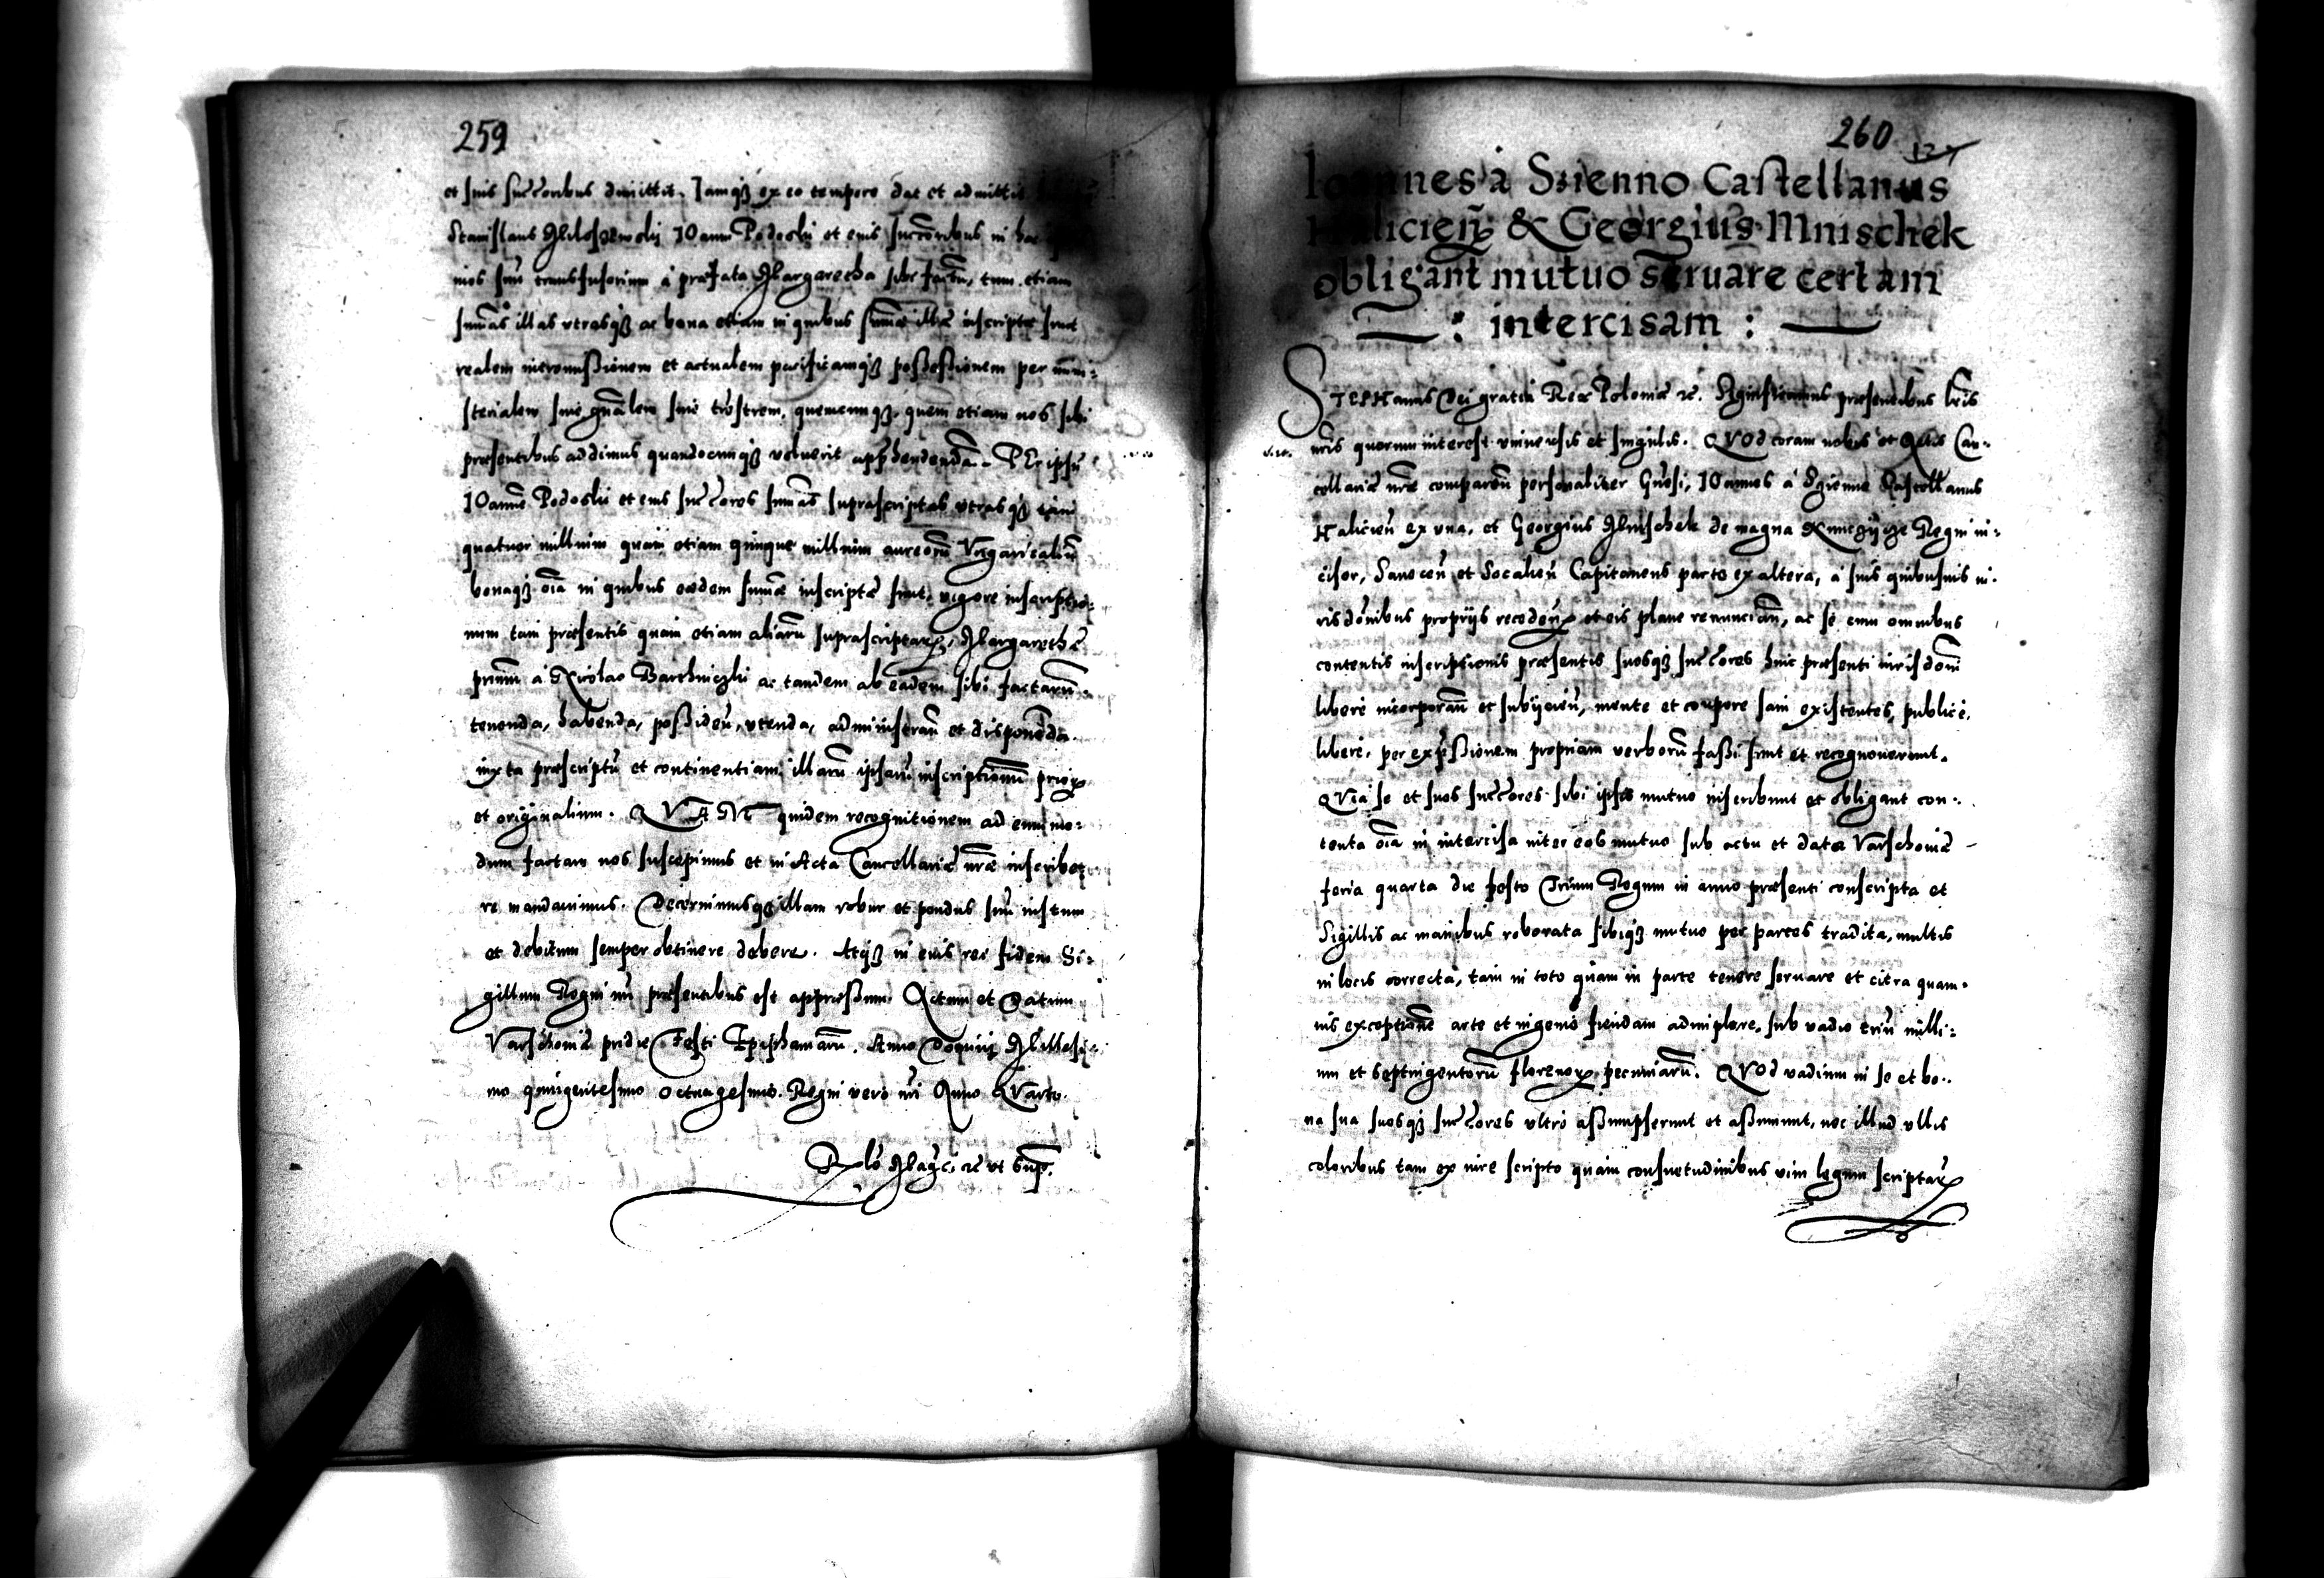 259
et suis succoribus dmittit. Iamq3 ex eo tempore dat et admittit
Stanislaus Ioanni Podoski et eius succoribus in
suu transfusorium à præfata Margaretha sibi factu, tum etiam
sumas illas vtrasq3 ac bona etiam in quibus sumæ illæ inscriptæ sunt
realem intromissionem et actualem pacificamq3 possessionem per mini:
sterialem siue gnalem siue trrstrem, quemcunq3, quem etiam nos sibi
præsentibus addimus quandocunq3 voluerit apphendendā. PEr ipsu
IOanne Podoski et eius succores sumas suprascriptas vtrasq3 tam
quatuor millium quam etiam quinque millium aureoru Vngaricaliu
bonaq3 oīa in quibus eædem sumæ inscriptæ sunt, vigore inscriptio:
num tam præsentis quam etiam aliaru suprascriptar, Margarethæ
primu à Nicolao ac tandem ab eadem sibi factaru.
tenenda, habenda, possiden, vtenda, administran et disponēda.
iuxta præscriptu et continentiam illaru ipsaru inscriptionu prior
et originalium. QVAM quidem recognitionem ad eum mo:
dum factam nos suscepimus et in Acta Cancellariæ nræ inscribe
re mandauimus. Decernimusq3 illam robur et pondus suu iustum
et debitum semper obtinere debere. Atq3 in eius rei fidem Si:
gillum Regni nri præsentibus est appræssum. Actum et Datum
Varschouiæ pridie Festi Epiphaniaru. Anno Domini Millesi:
mo quingentesimo octuagesimo. Regni vero nri Anno QVarto.
Rlo Magci et vt sup.
260
127
Ioannes à Szienno Castellanus
Halicien & Georgius Mnischek
obligant mutuo seruare certam
: intercisam :
STEPHanus Dei gratia Rex Poloniæ etc. Significamus præsentibus lris
nris quorum interest vniuersis et singulis. QVOd coram nobis et Actis Can:
cellariæ nræ comparen personaliter Gnosi, IOannes à Szienno Castellanus
Halicien ex vna, et Georgius Mnischek de magna Kunczijcze Regni in:
cisor, Sanocen et Socalien Capitaneus parte ex altera, à suis quibusuis iu:
risdonibus proprijs receden et eis plane renuncian, ac se cum omnibus
contentis inscriptionis præsentis suosq3 succores huic præsenti iurisdoni
liberè incorporan et subijcien, mente et corpore sani existentes, publicè,
liberè, per expssionem propriam verboru fassi sunt et recognouerunt.
QVia se et suos succores sibi ipsis mutuo inscribunt et obligant con:
tenta oīa in intercisa inter eos mutuo sub actu et data Varschouiæ
feria quarta die festo Trium Regum in anno præsenti conscripta et
Sigillis ac manibus roborata sibiq3 mutuo per partes tradita, multis
in locis correcta, tam in toto quam in parte tenere seruare et citra quam:
uis exceptione arte et ingenio fiendam adimplere, sub vadio triu milli:
um et septingentoru florenor pecuniaru. QVOd vadium in se et bo:
na sua suosq3 succores vltro assumpserunt et assumunt, nec illud vllis
coloribus tam ex iure scripto quam consuetudinibus vim legum scriptar